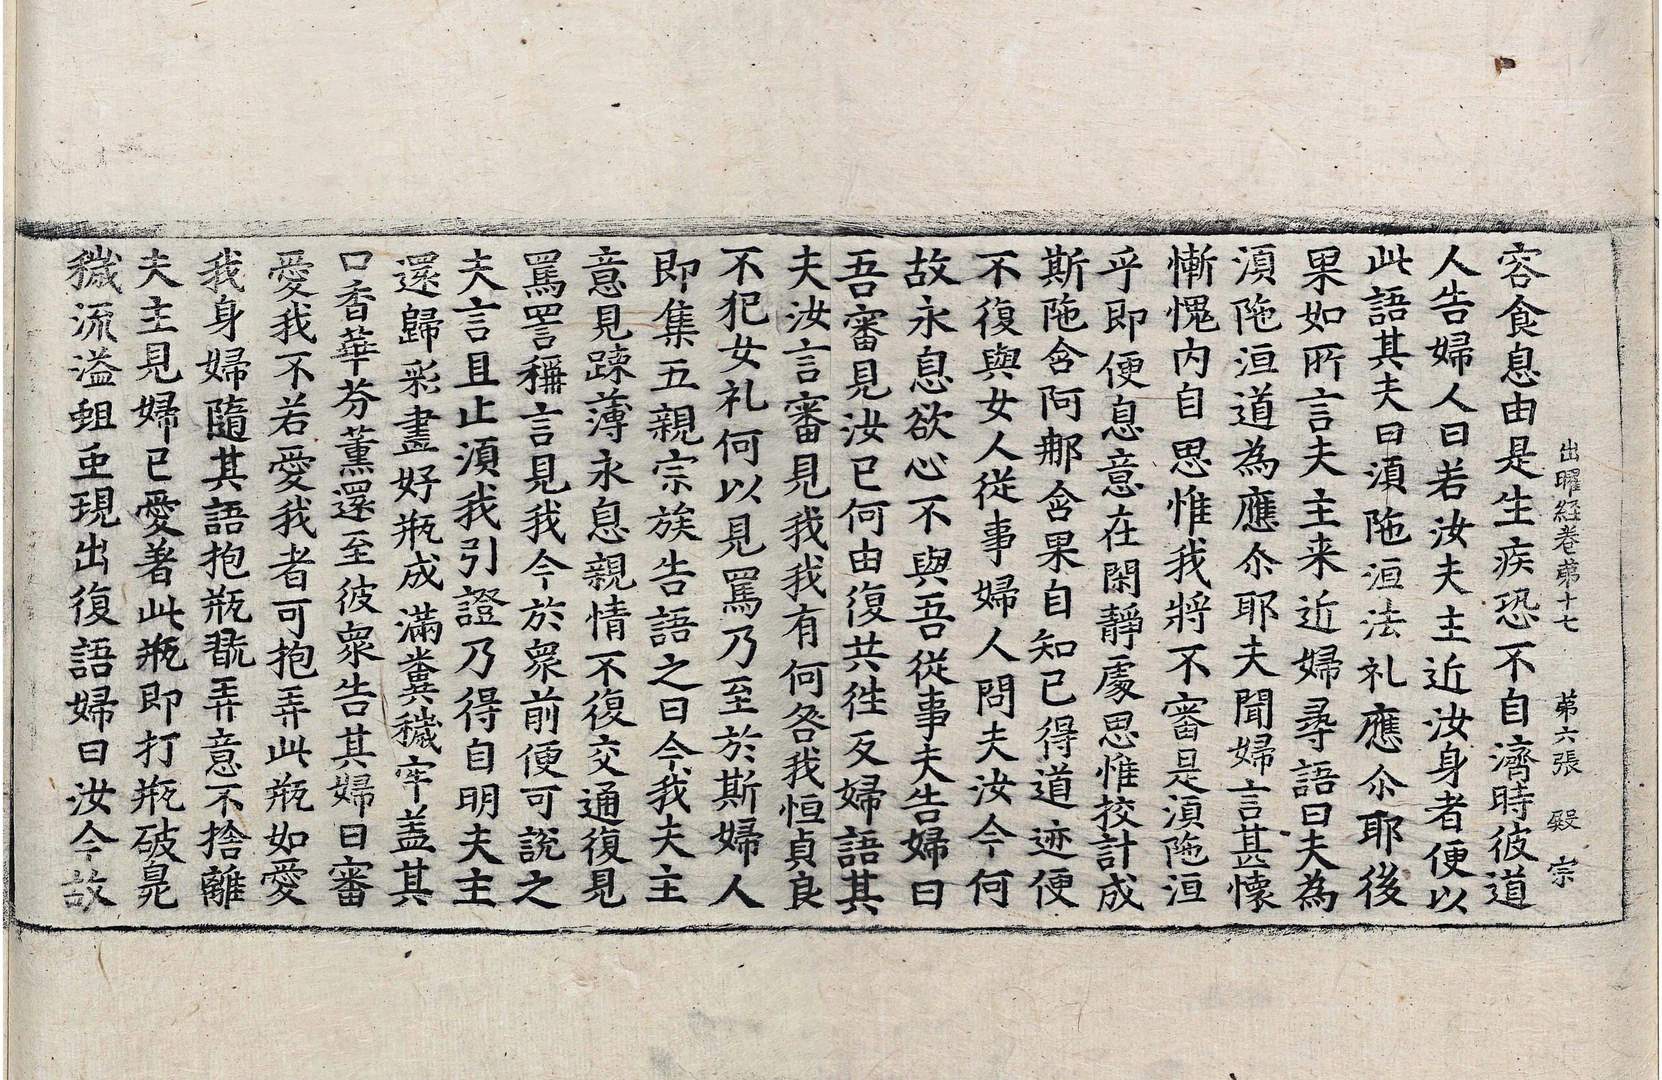 出曜経卷苐十七 苐六張 殿 宗
容食息由是生疾恐不自濟時彼道
人告婦人曰若汝夫主近汝身者便以
此語其夫曰湏陁洹法礼應尒耶後
果如所言夫主来近婦尋語曰夫為
湏陁洹道為應尒耶夫聞婦言甚懷
慚愧内自思惟我將不審是湏陁洹
乎即便息意在閑靜處思惟挍計成
斯陁含阿那含果自知已得道迹便
不復與女人從事婦人問夫汝今何
故永息欲心不與吾從事夫告婦曰
吾審見汝已何由復共徃反婦語其
夫汝言審見我我有何咎我恒貞良
不犯女礼何以見罵乃至於斯婦人
即集五親宗族告語之曰今我夫主
意見踈薄永息親情不復交通復見
罵詈稱言見我今於衆前便可說之
夫言且止湏我引證乃得自明夫主
還歸彩畫好瓶成滿糞穢牢盖其
口香華芬薰還至彼衆告其婦曰審
愛我不若愛我者可抱弄此瓶如愛
我身婦隨其語抱瓶翫弄意不捨離
夫主見婦已愛著此瓶即打瓶破臰
穢流溢蛆䖝現出復語婦曰汝今故